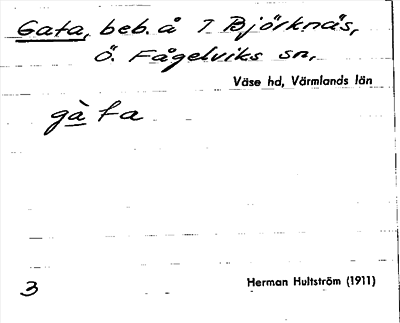 Gata, beb. å 7 Björknäs,
Ö. Fågelviks sn,
Väse hd, Värmlands län
gà ta
3
Herman Hultström (1911)